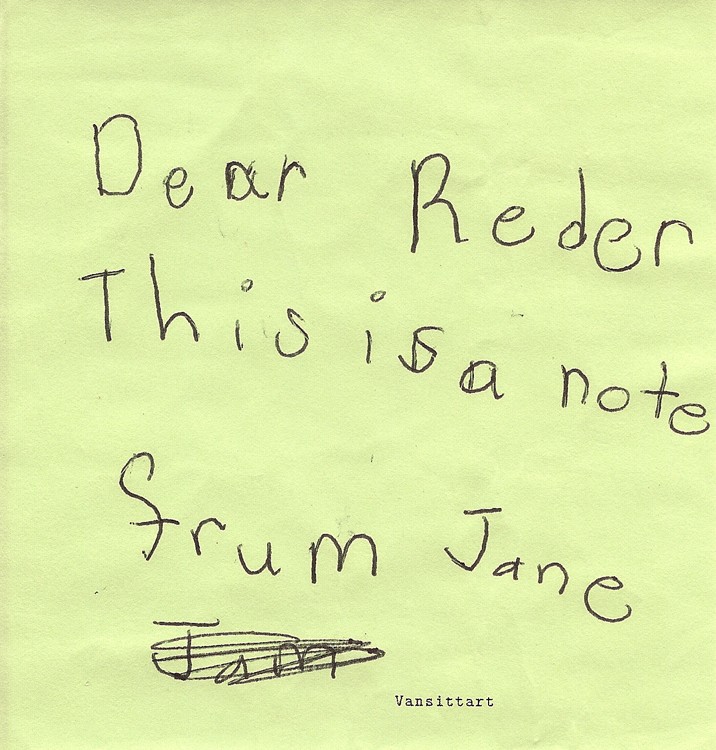 Dear Reder
This is a note
frum Jane
Jam
Vansittart